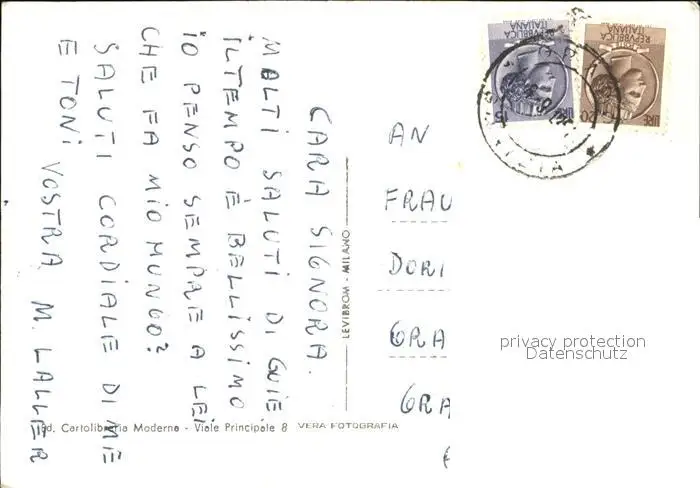 CARA SIGNORA.
MOLTI SALUTI DI QUIE
ILTEMPO È BELLISSIMO
IO PENSO SEMPRE A LEI
CHE FA MIO MUNGO?
SALUTI CORDIALE DI ME
E TONI VOSTRA M. LALLER
LEVIBROM - MILANO
Ed. Cartolibreria Moderna - Viale Principale 8 VERA FOTOGRAFIA
REPVBBLICA
ITALIANA
POSTE
LIRE 15
REPVBBLICA
ITALIANA
POSTE
LIRE 20
AN
FRAU
DORI
GRA
GRA
privacy protection
Datenschutz